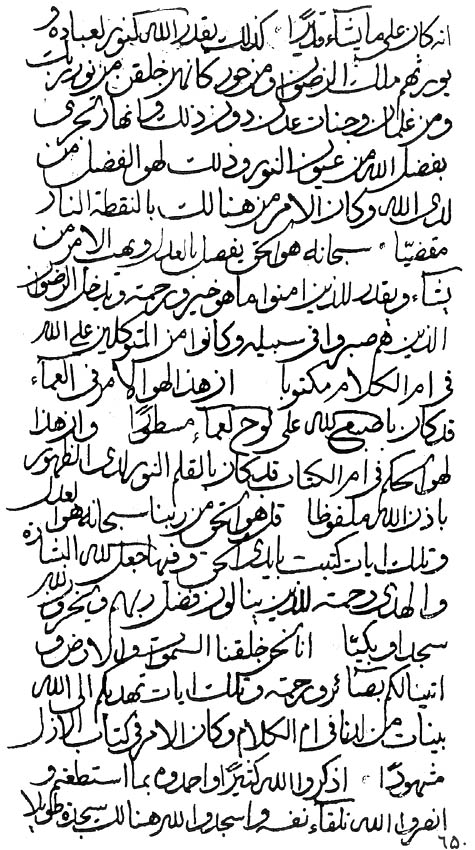 انه كان على ما يشاء قديرًا كذلك يقدر الله كنوز لعباده و
يورثهم ملك الرضوان ومن حور كانهن خلقن من نور بحت
ومن غلمان وجنات عدن دون ذلك وانهار تجرى
بفضل الله من عيون النور وذلك لهو الفضل من
لدى الله وكان الامر من هنالك بالنقطة النار
مقضيًا سبحانه هو الحق يفصل بالعدل ويهب الامر من
يشاء ويقدر للذين امنوا ما هو خير ورحمة ويدخل الرضوان
الذين هم صبروا فى سبيله وكانوا من المتوكلين على الله
فى ام الكلام مكتوبا ان هذا لهو الامر فى العماء
قد كان باصبع الله على لوح لعماء مسطورًا وان هذا
لهو الحكم فى ام الكتاب قد كان بالقلم النور لدى الظهور
باذن الله ملفوظا قل هو الحق من ربنا سبحانه هو العدل
وتلك ايات كتبت بايدى الحق وفيها جعل الله البشارة
والهدى رحمة للذين ينالون فضل ربهم ويخرون لله
سجدا وبكيًا انا نحن خلقنا السموات والارض و
اتينا لكم بصائر ورحمة وتلك ايات تهديكم الى الله
بينات من لدنا فى ام الكلام وكان الامر فى كتاب الازل
مشهودًا اذكروا الله كثيرًا واحمدوه بما استطعتم و
انصروا الله تلقاء نفسه واسجدوا الله هنالك سجدة طويلا
٦٥